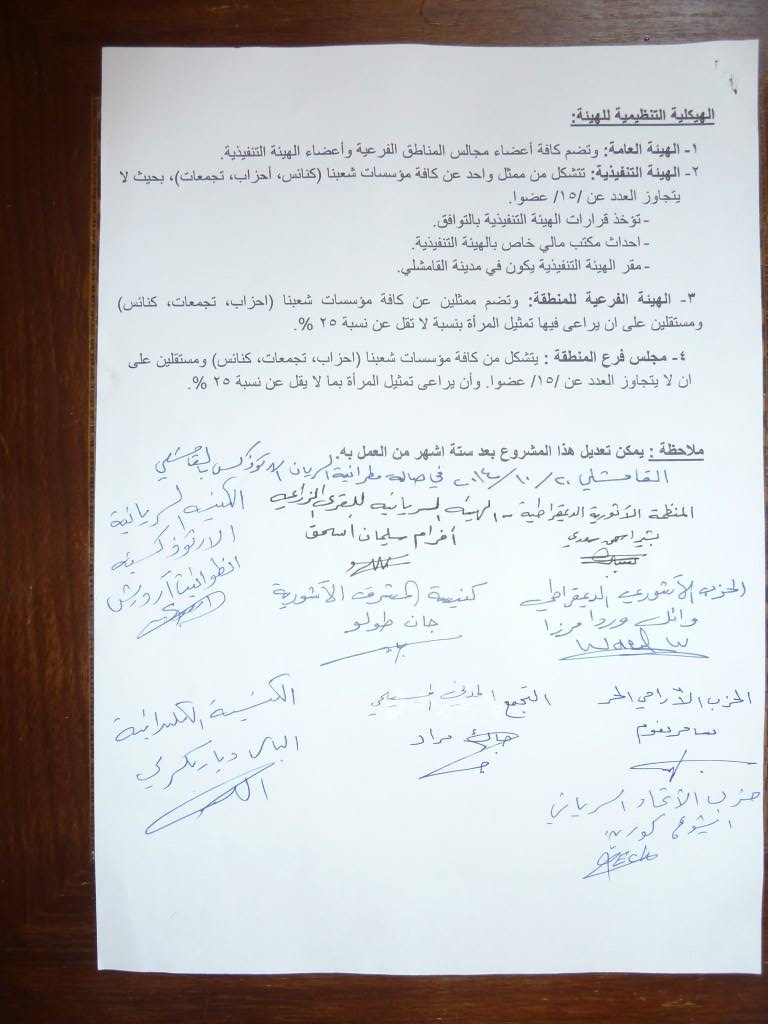 الهيكلية التنظيمية للهيئة:
١- الهيئة العامة: وتضم كافة أعضاء مجالس المناطق الفرعية وأعضاء الهيئة التنفيذية.
٢- الهيئة التنفيذية: تتشكل من ممثل واحد عن كافة مؤسسات شعبنا (كنائس، أحزاب، تجمعات)، بحيث لا
يتجاوز العدد عن /١٥/ عضوا.
- تؤخذ قرارات الهيئة التنفيذية بالتوافق.
- احداث مكتب مالي خاص بالهيئة التنفيذية.
- مقر الهيئة التنفيذية يكون في مدينة القامشلي.
٣- الهيئة الفرعية للمنطقة: وتضم ممثلين عن كافة مؤسسات شعبنا (احزاب، تجمعات، كنائس)
ومستقلين على ان يراعى فيها تمثيل المرأة بنسبة لا تقل عن نسبة ٢٥ %.
٤- مجلس فرع المنطقة : يتشكل من كافة مؤسسات شعبنا (احزاب، تجمعات، كنائس) ومستقلين على
ان لا يتجاوز العدد عن /١٥/ عضوا. وأن يراعى تمثيل المرأة بما لا يقل عن نسبة ٢٥ %.
ملاحظة : يمكن تعديل هذا المشروع بعد ستة اشهر من العمل به.
القامشلي ٢٠/١٠/٢٠١٤ في صالة مطرانية السريان الارثوذكس بالقامشلي
المنظمة الآثورية الديمقراطية - الهيئة السريانية
بشير اسحق سعدي
أفرام سليمان أسحق
الكنيسة السريانية
الارثوذكسية
الحزب الآشوري الديمقراطي
وائل وردا ميرزا
Wael W
كنيسة المشرق الآشورية
جان طولو
الحزب الآرامي الحر
سامر
التجمع المدني المسيحي
جاك مراد
الكنيسة الكلدانية
الياس دياربكرلي
حزب الاتحاد السرياني
ايشوع كورية